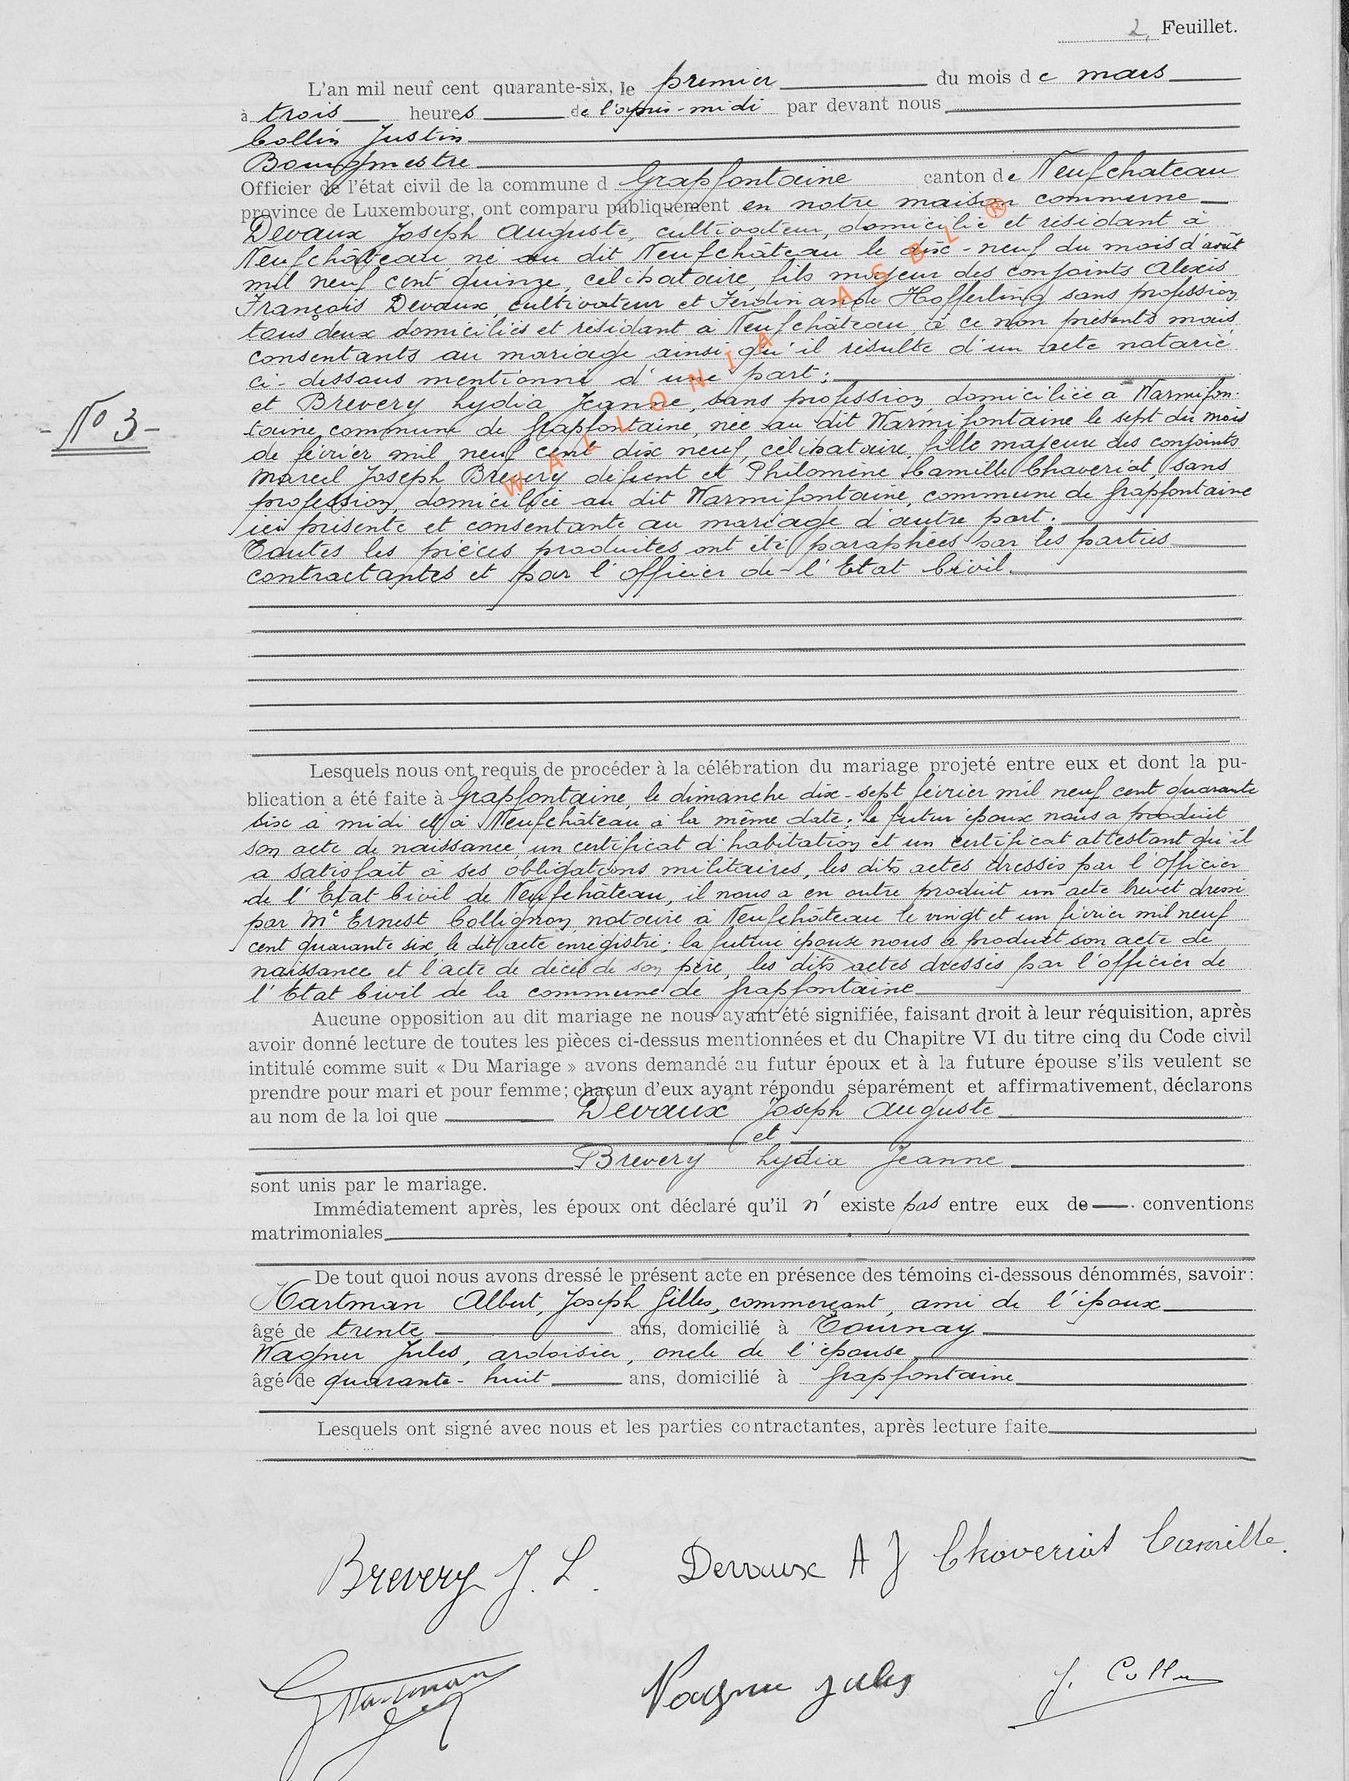 2, Feuillet.
L'an mil neuf cent quarante-six, le premier du mois de mars
à trois heures de l'après-midi par devant nous
Collin Justin
Bourgmestre
Officier de l'état civil de la commune d Grapfontaine canton de Neufchateau
province de Luxembourg, ont comparu publiquement en notre maison commune
Devaux Joseph Auguste, cultivateur, domicilié et résidant à
Neufchâteau né au dit Neufchâteau le dix-neuf du mois d'août
mil neuf cent quinze, célibataire, fils majeur des conjoints Alexis
François Devaux, cultivateur et Ferdinande Hofferling sans profession
tous deux domiciliés et résidant à Neufchâteau, à ce non présents mais
consentants au mariage ainsi qu'il résulte d'un acte notarié
ci-dessous mentionné d'une part;
et Brevery Lydia Jeanne, sans profession, domiciliée à Warmifon-
taine commune de Grapfontaine, née au dit Warmifontaine le sept du mois
- No 3 -
de février mil neuf cent dix neuf, célibataire, fille majeure des conjoints
Marcel Joseph Brevery défunt et Philomène Camille Chaveriat, sans
profession, domiciliée au dit Warmifontaine, commune de Grapfontaine
ici présente et consentante au mariage d'autre part.
Toutes les pièces produites ont été paraphées par les parties
contractantes et par l'officier de l'Etat Civil.
WALLONIA ASBL ®
Lesquels nous ont requis de procéder à la célébration du mariage projeté entre eux et dont la pu-
blication a été faite à Grapfontaine, le dimanche dix-sept février mil neuf cent quarante
six à midi et à Neufchâteau à la même date; le futur époux nous a produit
son acte de naissance, un certificat d'habitation et un certificat attestant qu'il
a satisfait à ses obligations militaires, les dits actes dressés par l'officier
de l'Etat Civil de Neufchâteau, il nous a en outre produit un acte brevet dressé
par Me Ernest Collignon, notaire à Neufchâteau le vingt et un février mil neuf
cent quarante six, le dit acte enregistré; la future épouse nous a produit son acte de
naissance et l'acte de décès de son père, les dits actes dressés par l'officier de
l'Etat Civil de la commune de Grapfontaine
Aucune opposition au dit mariage ne nous ayant été signifiée, faisant droit à leur réquisition, après
avoir donné lecture de toutes les pièces ci-dessus mentionnées et du Chapitre VI du titre cinq du Code civil
intitulé comme suit « Du Mariage » avons demandé au futur époux et à la future épouse s'ils veulent se
prendre pour mari et pour femme; chacun d'eux ayant répondu séparément et affirmativement, déclarons
au nom de la loi que Devaux Joseph Auguste
et
Brevery Lydia Jeanne
sont unis par le mariage.
Immédiatement après, les époux ont déclaré qu'il n'existe pas entre eux de conventions
matrimoniales
De tout quoi nous avons dressé le présent acte en présence des témoins ci-dessous dénommés, savoir:
Hartman Albert, Joseph Gilles, commerçant, ami de l'époux
âgé de trente ans, domicilié à Tournay
Wagner Jules, ardoisier, oncle de l'épouse
âgé de quarante-huit ans, domicilié à Grapfontaine
Lesquels ont signé avec nous et les parties contractantes, après lecture faite
Brevery J. L. Devaux A J Chaveriat Camille.
Hartman Wagner Jules J. Collin